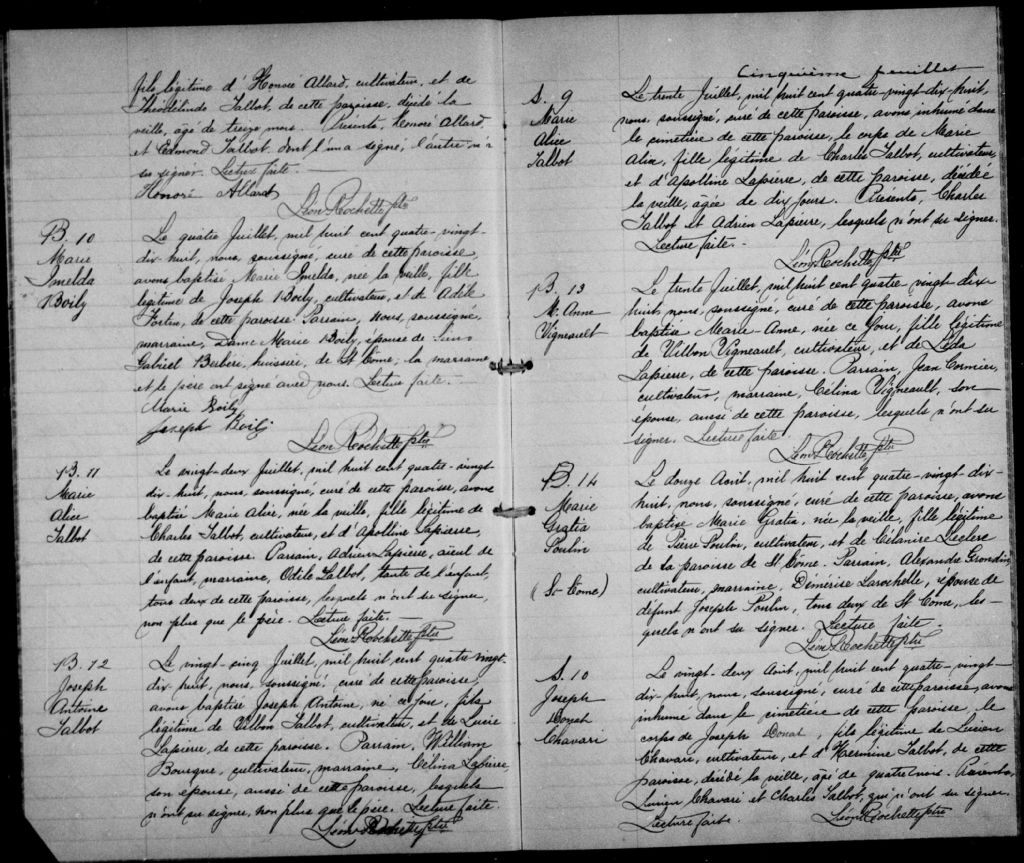 fils légitime d'Honoré Allard, cultivateur, et de
Théodélinde Talbot, de cette paroisse, décédé la
veille, âgé de treize mois. Présents, Honoré Allard,
et Edmond Talbot dont l'un a signé, l'autre n'a
su signer. Lecture faite.
Honoré Allard
Léon Rochette ptre
B. 10
Marie
Imelda
Boily
Le quatre Juillet, mil huit cent quatre-vingt-
dix-huit, nous, soussigné, curé de cette paroisse,
avons baptisé Marie Imelda, née la veille, fille
légitime de Joseph Boily, cultivateur, et de Adèle
Fortin, de cette paroisse. Parrain, nous, soussigné,
marraine, Dame Marie Boily, épouse de Sieur
Gabriel Bubere, huissier, de St Côme; la marraine
et le père ont signé avec nous. Lecture faite.
Marie Boily
Joseph Boily
Léon Rochette ptre
B. 11
Marie
Alice
Talbot
Le vingt-deux Juillet, mil huit cent quatre-vingt-
dix-huit, nous, soussigné, curé de cette paroisse, avons
baptisé Marie Alice, née la veille, fille légitime de
Charles Talbot, cultivateur, et d'Apolline Lapierre,
de cette paroisse. Parrain, Adrien Lapierre, aïeul de
l'enfant, marraine, Odile Talbot, tante de l'enfant,
tous deux de cette paroisse, lesquels n'ont su signer,
non plus que le père. Lecture faite.
Léon Rochette ptre
B. 12
Joseph
Antoine
Talbot
Le vingt-cinq Juillet, mil huit cent quatre-vingt-
dix-huit, nous, soussigné, curé de cette paroisse,
avons baptisé Joseph Antoine, né ce jour, fils
légitime de Vilbon Talbot, cultivateur, et de Lucie
Lapierre, de cette paroisse. Parrain, William
Bourque, cultivateur, marraine, Célina Lapierre,
son épouse, aussi de cette paroisse, lesquels
n'ont su signer, non plus que le père. Lecture faite
Léon Rochette ptre
Cinquième feuillet
S. 9
Marie
Alice
Talbot
Le trente Juillet, mil huit cent quatre-vingt-dix-huit,
nous, soussigné, curé de cette paroisse, avons inhumé dans
le cimetière de cette paroisse, le corps de Marie
Alice, fille légitime de Charles Talbot, cultivateur,
et d'Apolline Lapierre, de cette paroisse, décédée
la veille, âgée de dix jours. Présents, Charles
Talbot et Adrien Lapierre, lesquels n'ont su signer.
Lecture faite.
Léon Rochette ptre
B. 13
M. Anne
Vigneault
Le trente Juillet, mil huit cent quatre-vingt-dix-
huit, nous, soussigné, curé de cette paroisse, avons
baptisé Marie-Anne, née ce jour, fille légitime
de Vilbon Vigneault, cultivateur, et de Léda
Lapierre, de cette paroisse. Parrain, Jean Cormier,
cultivateur, marraine, Célina Vigneault, son
épouse, aussi de cette paroisse, lesquels n'ont su
signer. Lecture faite.
Léon Rochette ptre
B. 14
Marie
Gratia
Poulin
(St Come)
Le douze Août, mil huit cent quatre-vingt-dix-
huit, nous, soussigné, curé de cette paroisse, avons
baptisé Marie Gratia, née la veille, fille légitime
de Pierre Poulin, cultivateur, et de Célanire Leclerc
de la paroisse de St Côme. Parrain, Alexandre Grondin,
cultivateur, marraine, Démérise Larochelle, épouse de
défunt Joseph Poulin, tous deux de St Come, les-
quels n'ont su signer. Lecture faite.
Léon Rochette ptre
S. 10
Joseph
Donat
Chavari
Le vingt-deux Août, mil huit cent quatre-vingt-
dix-huit, nous, soussigné, curé de cette paroisse, avons
inhumé dans le cimetière de cette paroisse, le
corps de Joseph Donat, fils légitime de Lucien
Chavari, cultivateur, et d'Hermine Talbot, de cette
paroisse, décédé la veille, âgé de quatre mois. Présents,
Lucien Chavari et Charles Talbot, qui n'ont su signer.
Lecture faite.
Léon Rochette ptre